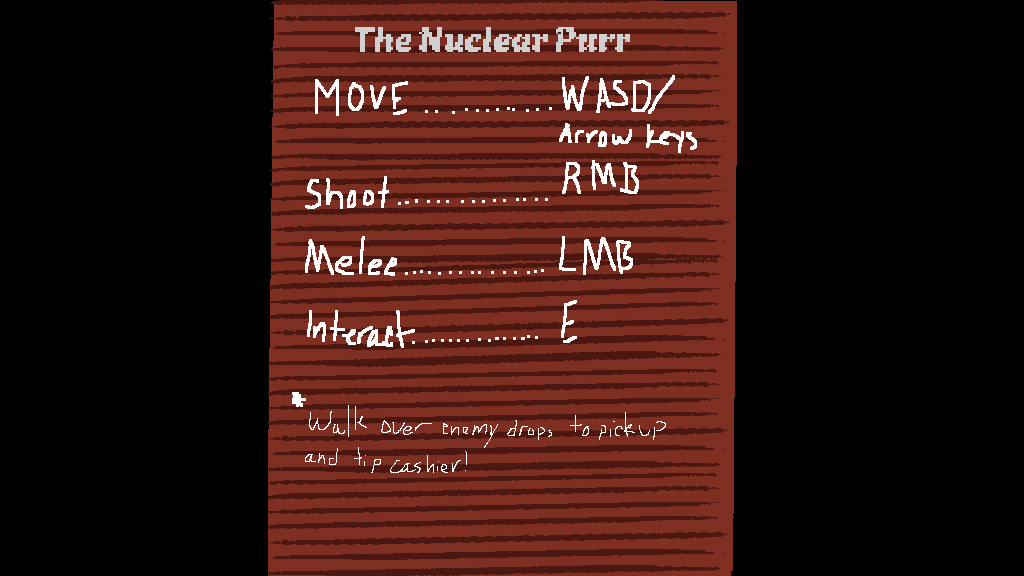 The Nuclear Purr
MOVE .............. WASD/
Arrow keys
Shoot ............... RMB
Melee ............... LMB
Interact ............. E
*
Walk over enemy drops to pickup
and tip cashier!